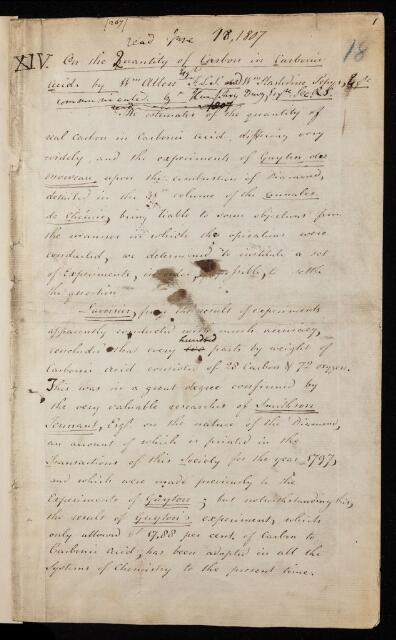 [267]
1
read June 18, 1807
18
XIV. On the Quantity of Carbon in Carbonic
Acid. by Wm Allen Esq. F.L.S. and Wm Hasledine Pepys, Esqrs.
communicated by Humphry Davy Esqr. Sec. R.S.
read 1807
The estimates of the quantity of
real carbon in Carbonic Acid, differing very
widely, and the experiments of Guyton de
Morveau, upon the combustion of Diamond,
detailed in the 31st volume of the Annales
de Chimie, being liable to some objections from
the manner in which the operations were
conducted, we determined to institute a set
of Experiments, in order, if possible, to settle
the question.
Lavoisier, from the result of experiments
apparently conducted with much accuracy,
hundred
concluded that every parts by weight of
Carbonic Acid consisted of 28 Carbon & 72 oxygen.
This was in a great degree confirmed by
the very valuable researches of Smithson
Tennant, Esqr. on the nature of the Diamond,
an account of which is printed in the
Transactions of this Society for the year 1797,
and which were made previously to the
Experiments of Guyton; but notwithstanding this,
the result of Guyton's experiment, which
only allowed 17.88 per cent. of Carbon to
Carbonic Acid, has been adopted in all the
Systems of Chemistry to the present time.